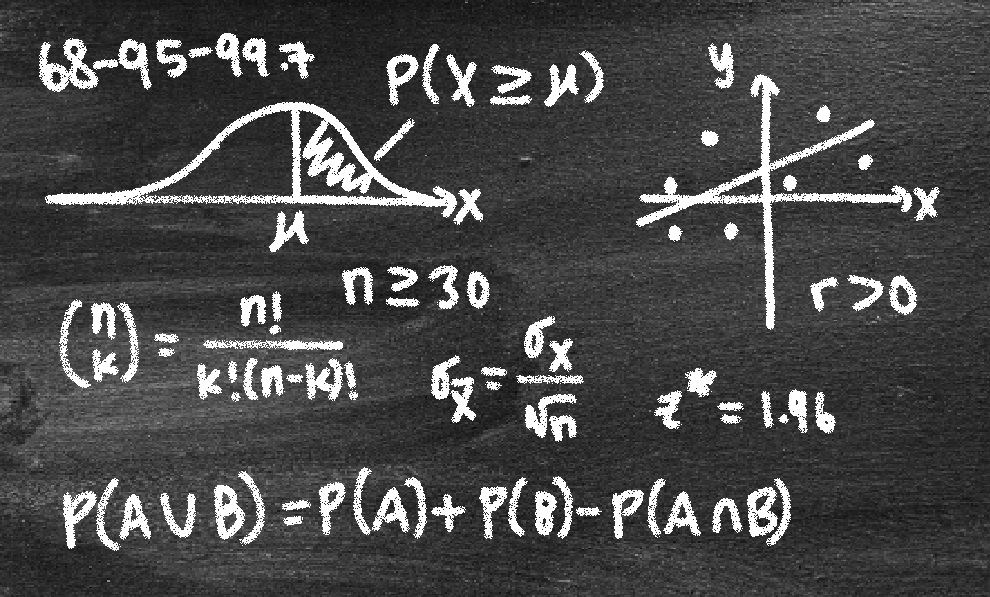 68-95-99.7
P(X ≥ μ)
μ
x
y
x
r>0
n ≥ 30
(n k) = n! / k!(n-k)!
σx̄ = σx / √n
z* = 1.96
P(A ∪ B) = P(A) + P(B) - P(A ∩ B)